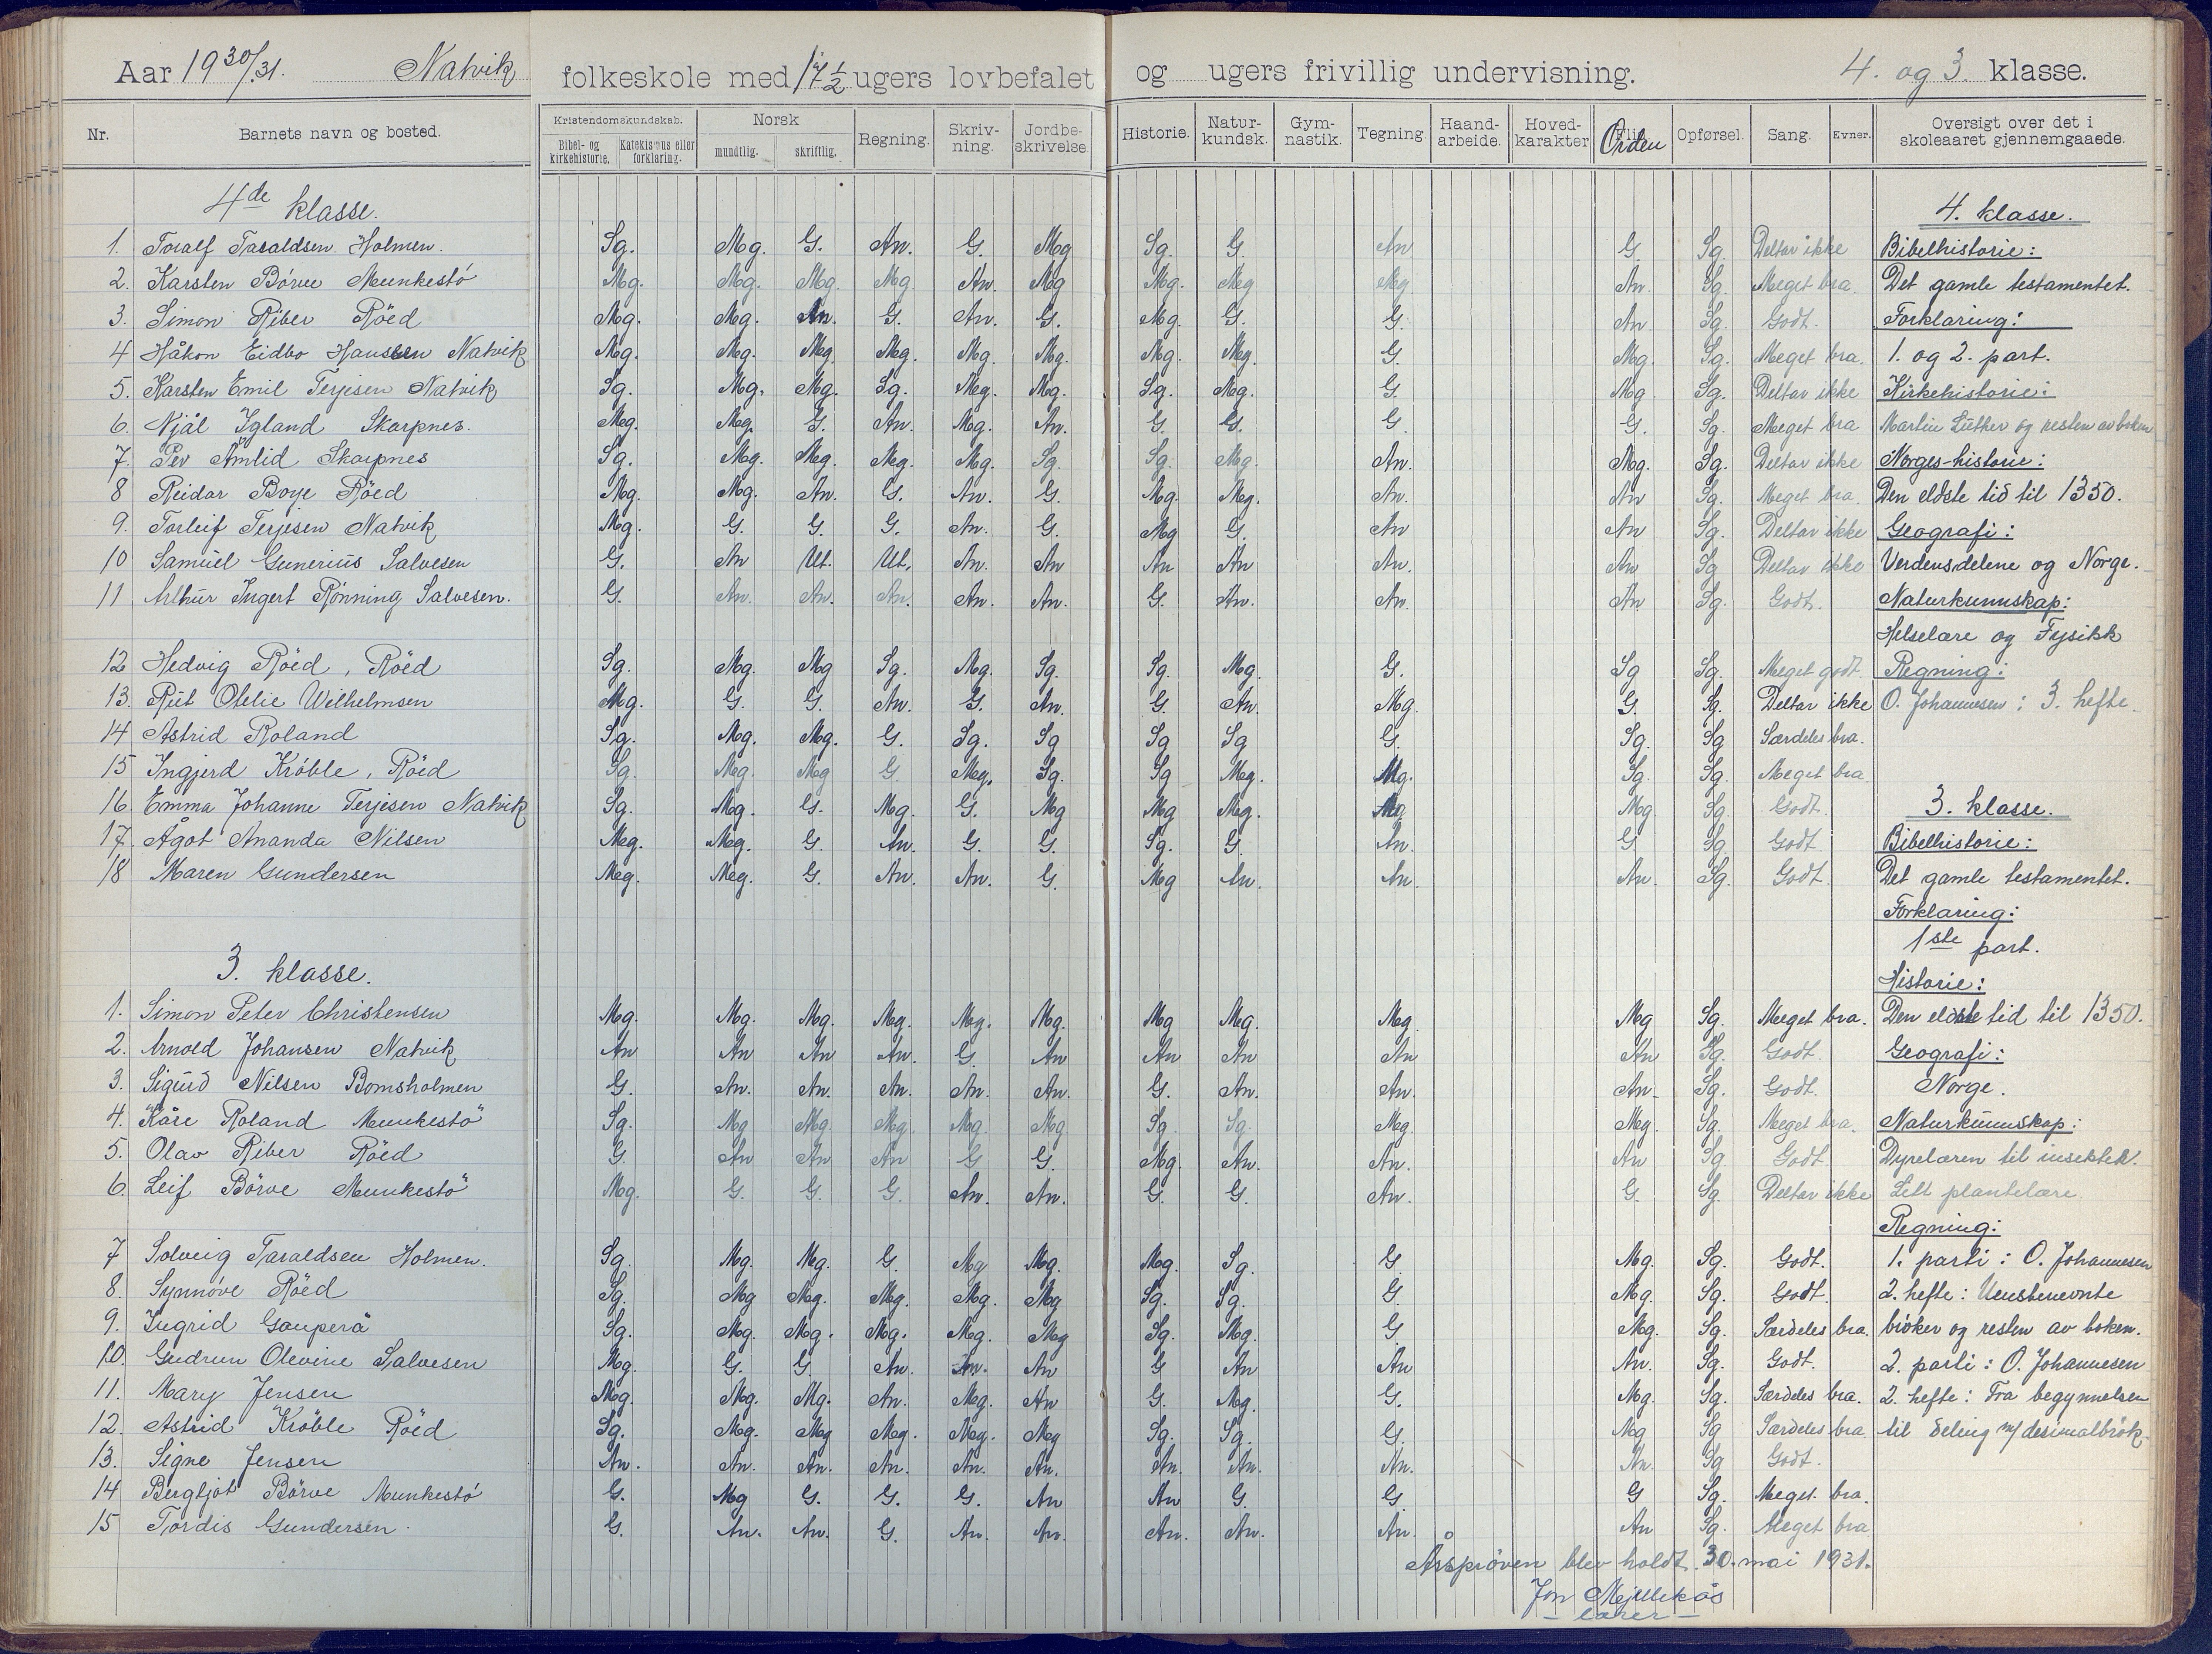 Aar 19 30/31. Natvik folkeskole med 17 1/2 ugers lovbefalet og ugers frivillig undervisning. 4. og 3. klasse.
Nr. Barnets navn og bosted. Kristendomskundskab. Bibel- og kirkehistorie. Katekismus eller forklaring. Norsk mundtlig. skriftlig. Regning. Skrivning. Jordbeskrivelse. Historie. Naturkundsk. Gymnastik. Tegning. Haandarbeide. Hovedkarakter Orden Opførsel. Sang. Evner. Oversigt over det i skoleaaret gjennemgaaede.
4de klasse. 4. klasse.
1. Toralf Taraldsen Holmen. Sg. Mg. G. An. G. Mg Sg. G. An G. Sg. Deltar ikke Bibelhistorie:
2. Karsten Börve Munkestö Mg. Mg. Mg. Mg. An. Mg Mg. Mg Mg An. Sg Meget bra. Det gamle testamentet.
3. Simon Riber Röed Mg. Mg. An. G. An. G. Mg. G. G. An. Sg. Godt. Forklaring:
4 Håkon Eidbo Hansen Natvik Mg. Mg. Mg. Mg. Mg. Mg. Mg. Mg. G. Mg. Sg. Meget bra. 1. og 2. part.
5. Karsten Emil Terjesen Natvik Sg. Mg. Mg. Sg. Mg. Mg. Sg. Mg. G. Mg Sg. Deltar ikke Kirkehistorie:
6. Njål Igland Skarpnes. Mg. Mg. G. An. Mg. An. G. G. G. G. Sg. Meget bra Martin Luther og resten av boken
7. Per Åmlid Skarpnes Sg. Mg. Mg. Mg. Mg. Sg. Sg. Mg. An. Mg. Sg. Deltar ikke Norges-historie:
8 Reidar Boye Röed Mg. Mg. An. G. An. G. Mg. Mg. An. An Sg. Meget bra. Den eldste tid til 1350.
9. Torleif Terjesen Natvik Mg. G. G. G. An. G. Mg G. An An Sg. Deltar ikke Geografi:
10 Samuel Gunerius Salvesen G. An Ut. Ut. An. An An An An. An Sg Deltar ikke Verdensdelene og Norge.
11 Arthur Ingert Rönning Salvesen. G. An. An. An. An. An. G. An. An. An Sg. Godt. Naturkunnskap:
Helselære og Fysikk
12 Hedvig Röed, Röed Sg. Mg. Mg Sg. Mg. Sg. Sg. Mg. G. Sg Sg. Meget godt. Regning:
13. Rut Otelie Wilhelmsen Mg. G. G. An. G. An. G. An. Mg. G. Sg. Deltar ikke O. Johannesen: 3. hefte.
14 Astrid Roland Sg. Mg. Mg. G. Sg. Sg Sg Sg G. Sg. Sg Særdeles bra.
15 Ingjerd Kröble, Röed Sg. Mg. Mg G. Mg. Sg. Sg Mg. Mg. Sg. Sg. Meget bra
16. Emma Johanne Terjesen Natvik Sg. Mg. G. Mg. G. Mg Mg Mg. Mg Mg Sg. Godt. 3. klasse.
17. Ågot Amanda Nilsen Mg. Mg. G. An. G. G. Sg. G. An. G Sg. Godt Bibelhistorie:
18 Maren Gundersen Mg. Mg. G. An. An. G. Mg An. An. An. Sg. Godt. Det gamle testamentet.
Forklaring:
1ste part.
3. klasse. Historie:
1. Simon Peter Christensen Mg. Mg. Mg. Mg. Mg. Mg. Mg Mg. Mg. Mg Sg. Meget bra. Den eldste tid til 1350.
2. Arnold Johansen Natvik An An An An. G. An An An An An Sg. Godt. Geografi:
3. Sigurd Nilsen Bomsholmen G. An. An. An. An. An. G. An. An. An. Sg. Godt. Norge.
4. Kåre Roland Munkestö Sg. Mg Mg Mg. Mg. Mg Sg. Sg. Mg. Mg. Sg. Meget bra. Naturkunnskap:
5. Olav Riber Röed G. An An An G G. Mg. An. An. An Sg Godt Dyrelæren til insekter.
6. Leif Börve Munkestö Mg. G. G. G. An. An. G. G. An. G. Sg. Deltar ikke Litt plantelære.
Regning:
7 Solveig Taraldsen Holmen. Sg. Mg. Mg. G. Mg Mg. Mg. Sg. G. Mg. Sg. Godt. 1. parti: O. Johannesen
8. Synnöve Röed Sg. Mg Mg. Mg. Mg. Mg Sg. Sg. G. Mg. Sg. Godt. 2. hefte: Uensbenevnte
9. Ingrid Gauperå Sg. Mg. Mg. Mg. Mg. Mg Sg. Mg. G Mg. Sg. Særdeles bra. bröker og resten av boken.
10. Gudrun Olevine Salvesen Mg. G. G. An. An. An G An An An. Sg. Godt. 2. parti: O. Johannesen
11. Mary Jensen Mg. Mg. Mg. An. Mg. An G. Mg. G. Mg. Sg. Særdeles bra. 2. hefte: Fra begynnelsen
12. Astrid Kröble Röed Sg. Mg. Mg Mg. Mg. Mg Sg. Sg. G. Mg Sg Særdeles bra. til deling m/ desimalbrök.
13. Signe Jensen An. An. An. An. An. An. An. An. An. An. Sg Godt.
14 Bergljot Börve Munkestö G. Mg G. G. G. An An G. G. G Sg. Meget bra.
15 Tordis Gundersen. G. An. An. G. An. An. An. An. An. An Sg. Meget bra
Årspröven blev holdt 30. mai 1931.
Jon Mjellekås
– lærer –